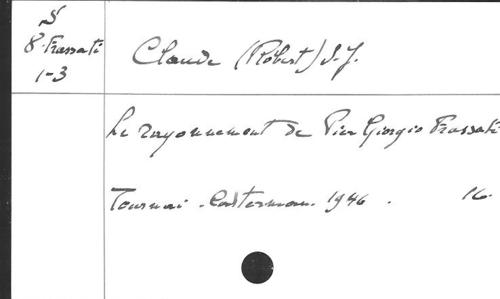 S
8° Frassati
1-3
Claude (Robert) S.J.
Le rayonnement de Pier Giorgio Frassati
Tournai. Casterman. 1946. 16